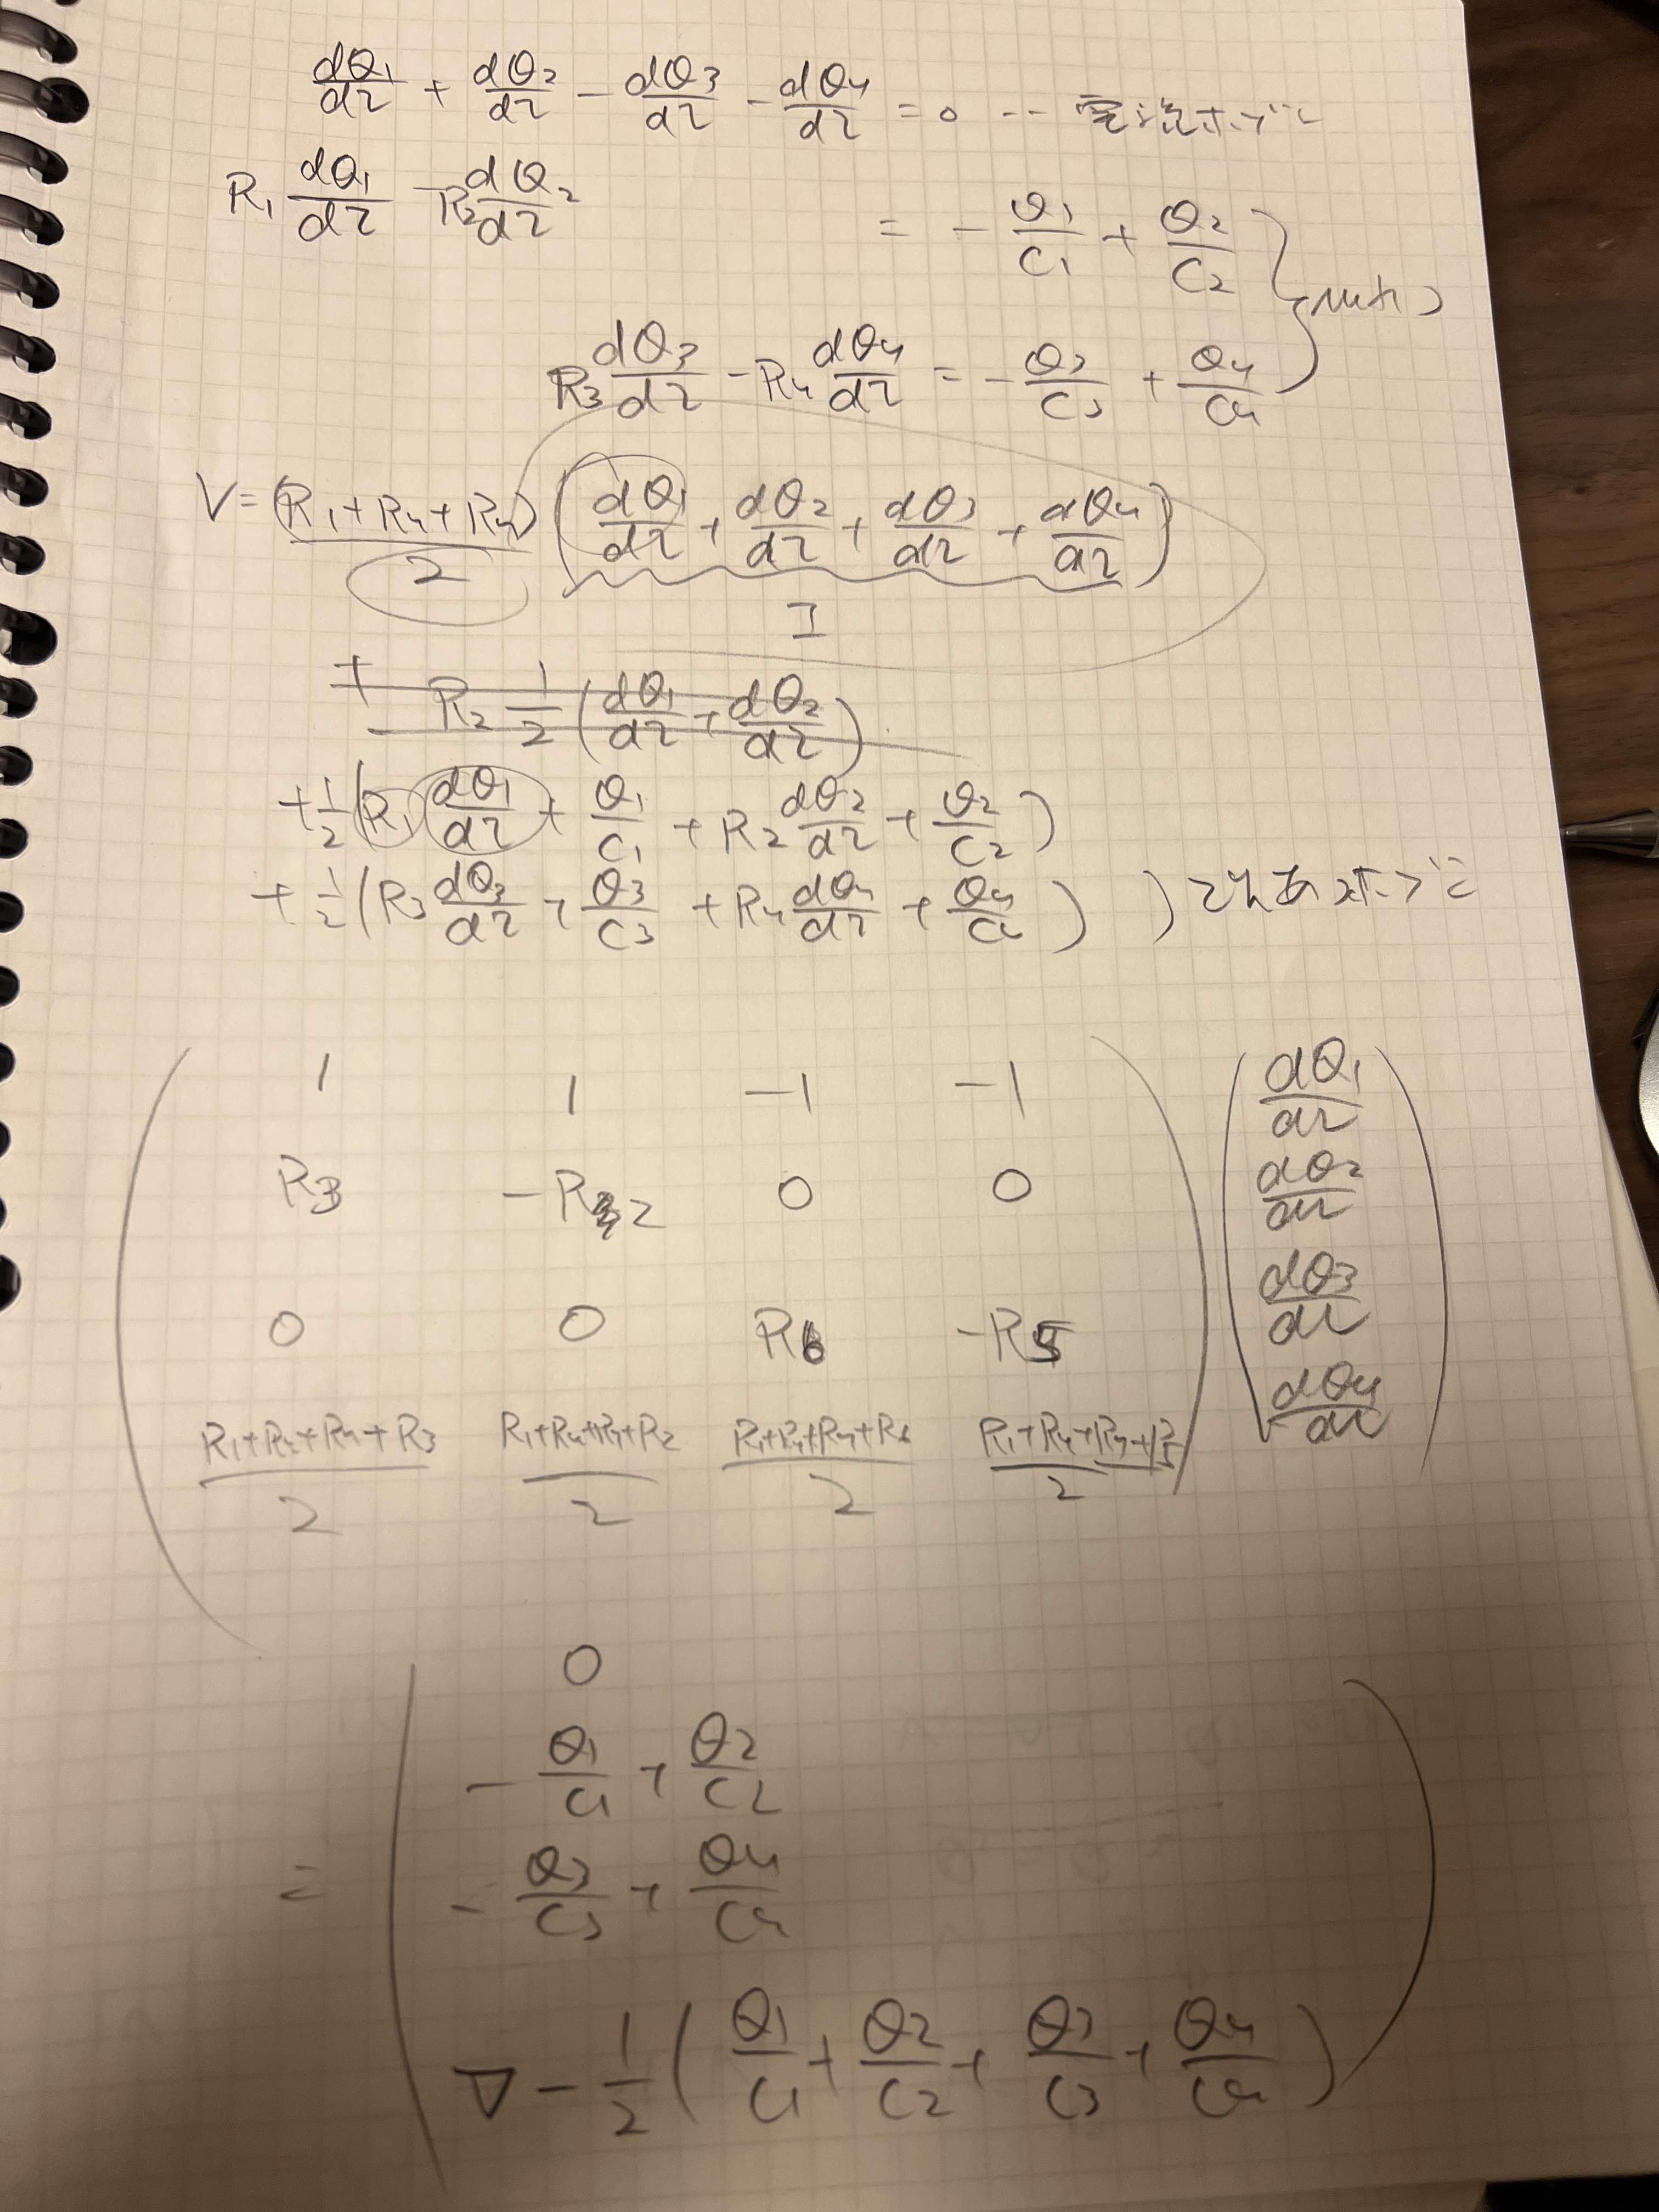 dQ₁/dt + dQ₂/dt − dQ₃/dt − dQ₄/dt = 0 -- 電流ホゾン
R₁ dQ₁/dt − R₂ dQ₂/dt = − Q₁/C₁ + Q₂/C₂
R₃ dQ₃/dt − R₄ dQ₄/dt = − Q₃/C₃ + Q₄/C₄
V = (R₁+R₄+R₄)/2 (dQ₁/dt + dQ₂/dt + dQ₃/dt + dQ₄/dt)
I
+ R₂ 1/2 (dQ₁/dt + dQ₂/dt)
+ 1/2 (R₁ dQ₁/dt + Q₁/C₁ + R₂ dQ₂/dt + Q₂/C₂)
+ 1/2 (R₃ dQ₃/dt + Q₃/C₃ + R₄ dQ₄/dt + Q₄/C₄)
1 1 −1 −1 dQ₁/dt
R₃ −R₂ 0 0 dQ₂/dt
0 0 R₆ −R₅ dQ₃/dt
(R₁+R₄+R₄+R₃)/2 (R₁+R₄+R₄+R₂)/2 (R₁+R₄+R₄+R₆)/2 (R₁+R₄+R₄+R₅)/2 dQ₄/dt
0
− Q₁/C₁ + Q₂/C₂
= − Q₃/C₃ + Q₄/C₄
V − 1/2 (Q₁/C₁ + Q₂/C₂ + Q₃/C₃ + Q₄/C₄)